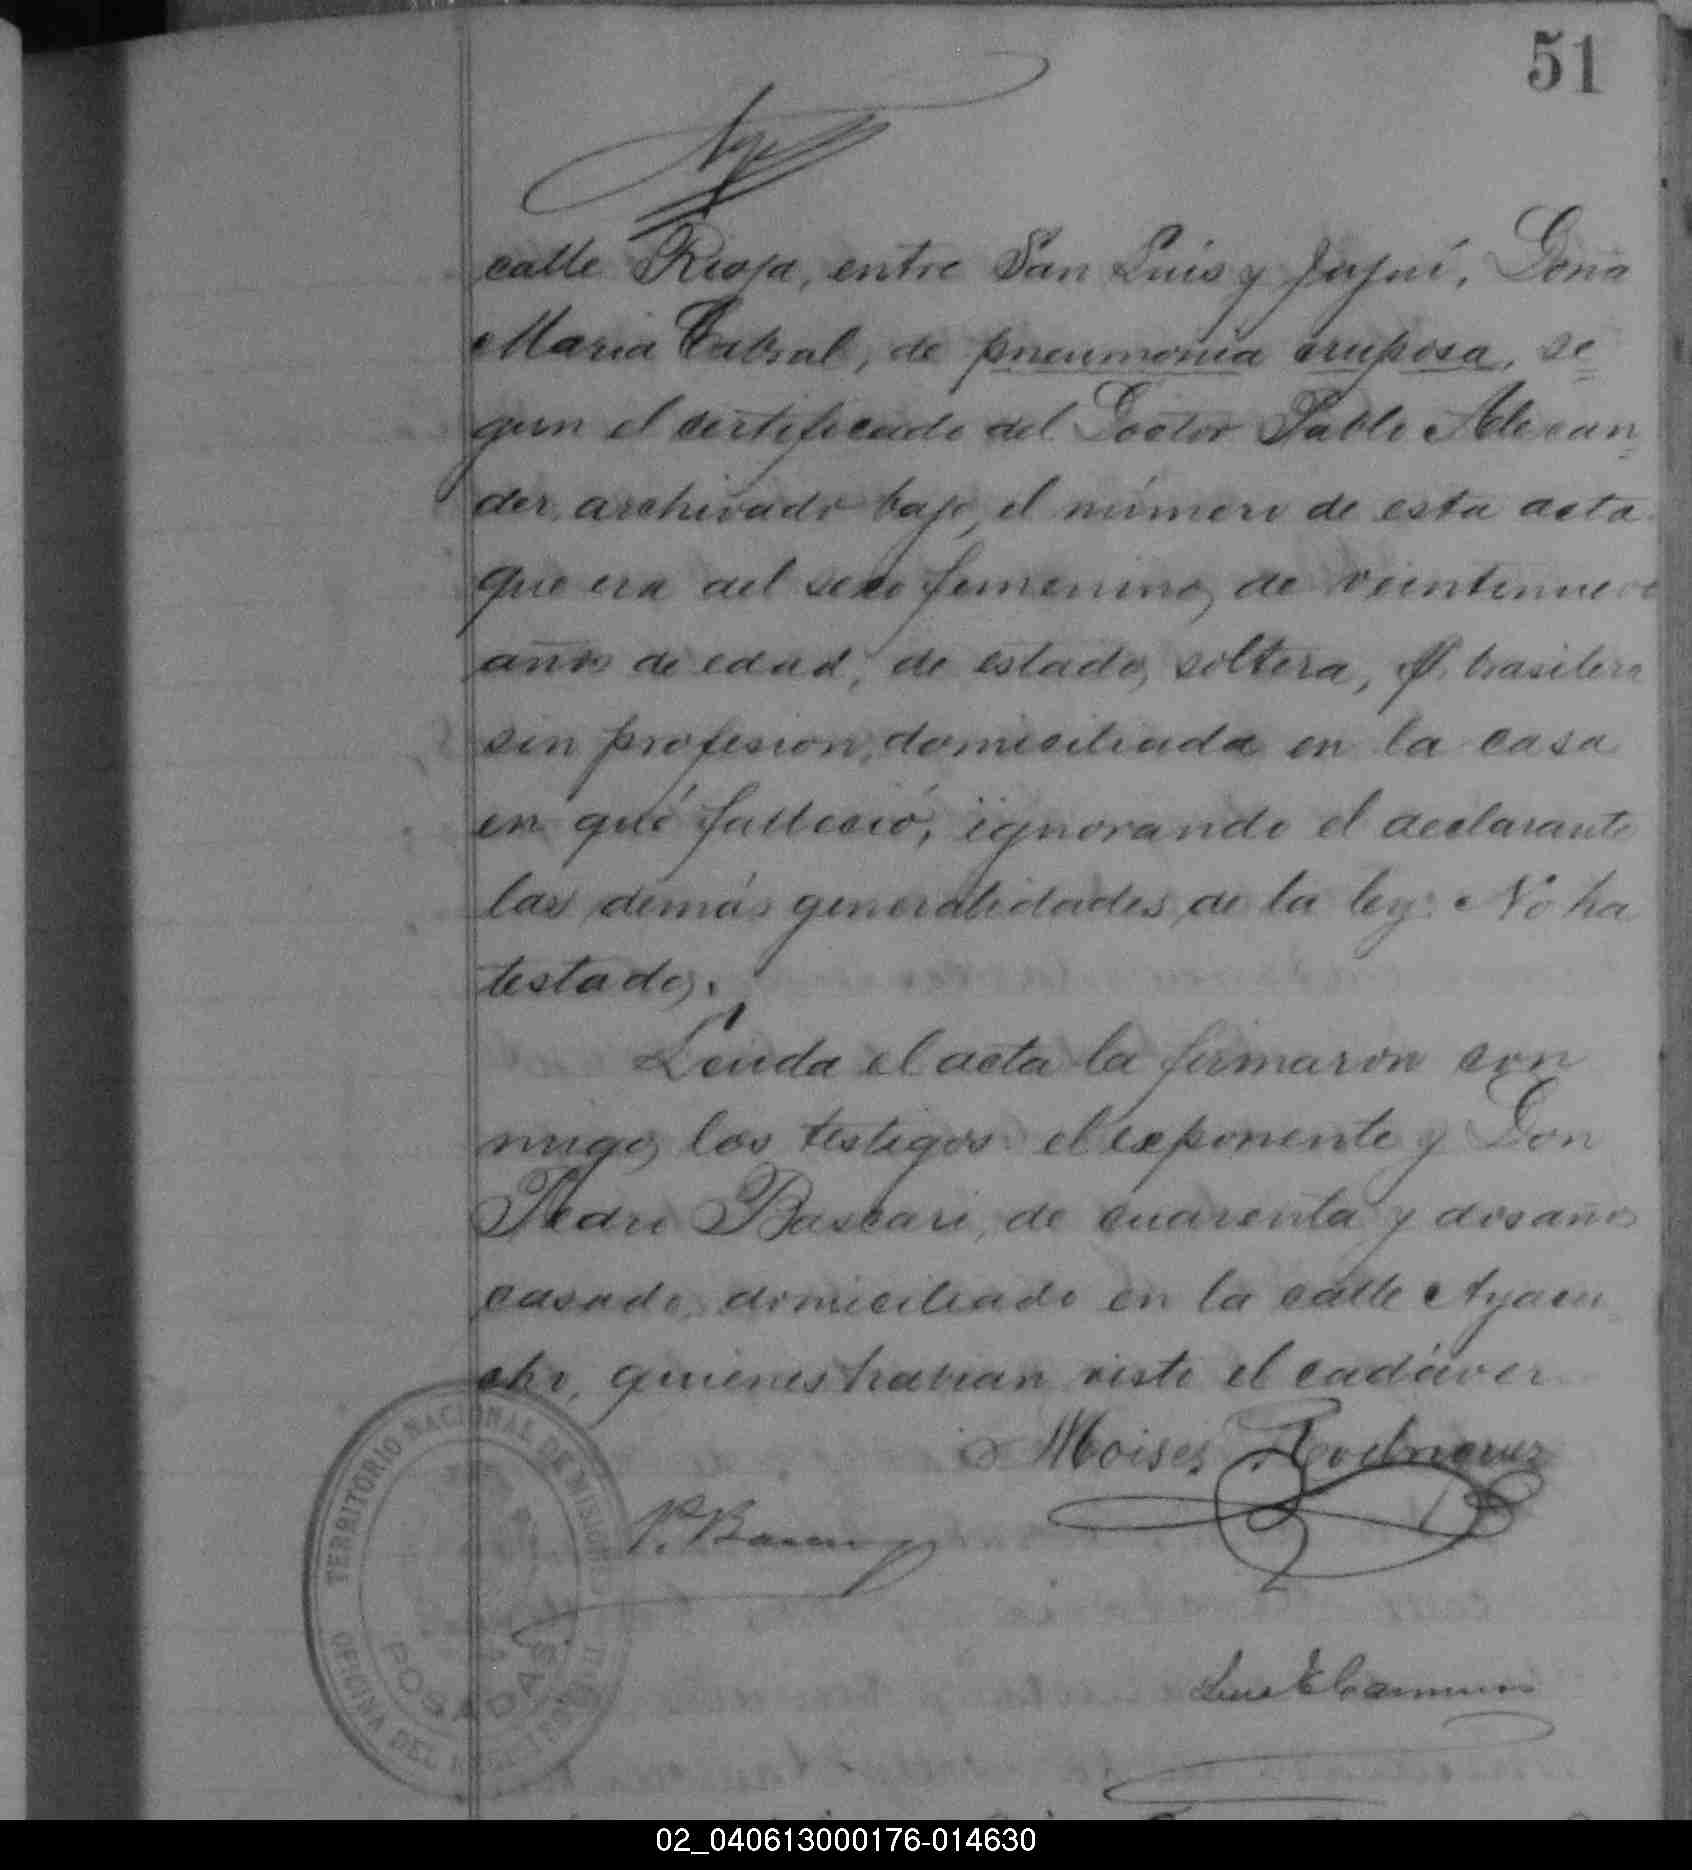 51
calle Rioja, entre San Luis y Jujuí, Doña
Maria Cabral, de pneumonia cruposa, se=
gun el certificado del Doctor Pablo Alexan=
der, archivado bajo el número de esta acta
que era del sexo femenino, de veintinueve
años de edad, de estado soltera, brasilera
sin profesion, domiciliada en la casa
en qué falleció, ignorando el declarante
las demás generalidades de la ley. No ha
testado.
Leida el acta la firmaron con
migo, los testigos: el exponente y Don
Pedro Bascari, de cuarenta y dos años
casado, domiciliado en la calle Ayacu
cho, quienes habian visto el cadáver
Moises
P. Bascary
TERRITORIO NACIONAL DE MISIONES
POSADAS
OFICINA DEL REGISTRO CIVIL
Luis E
02_040613000176-014630